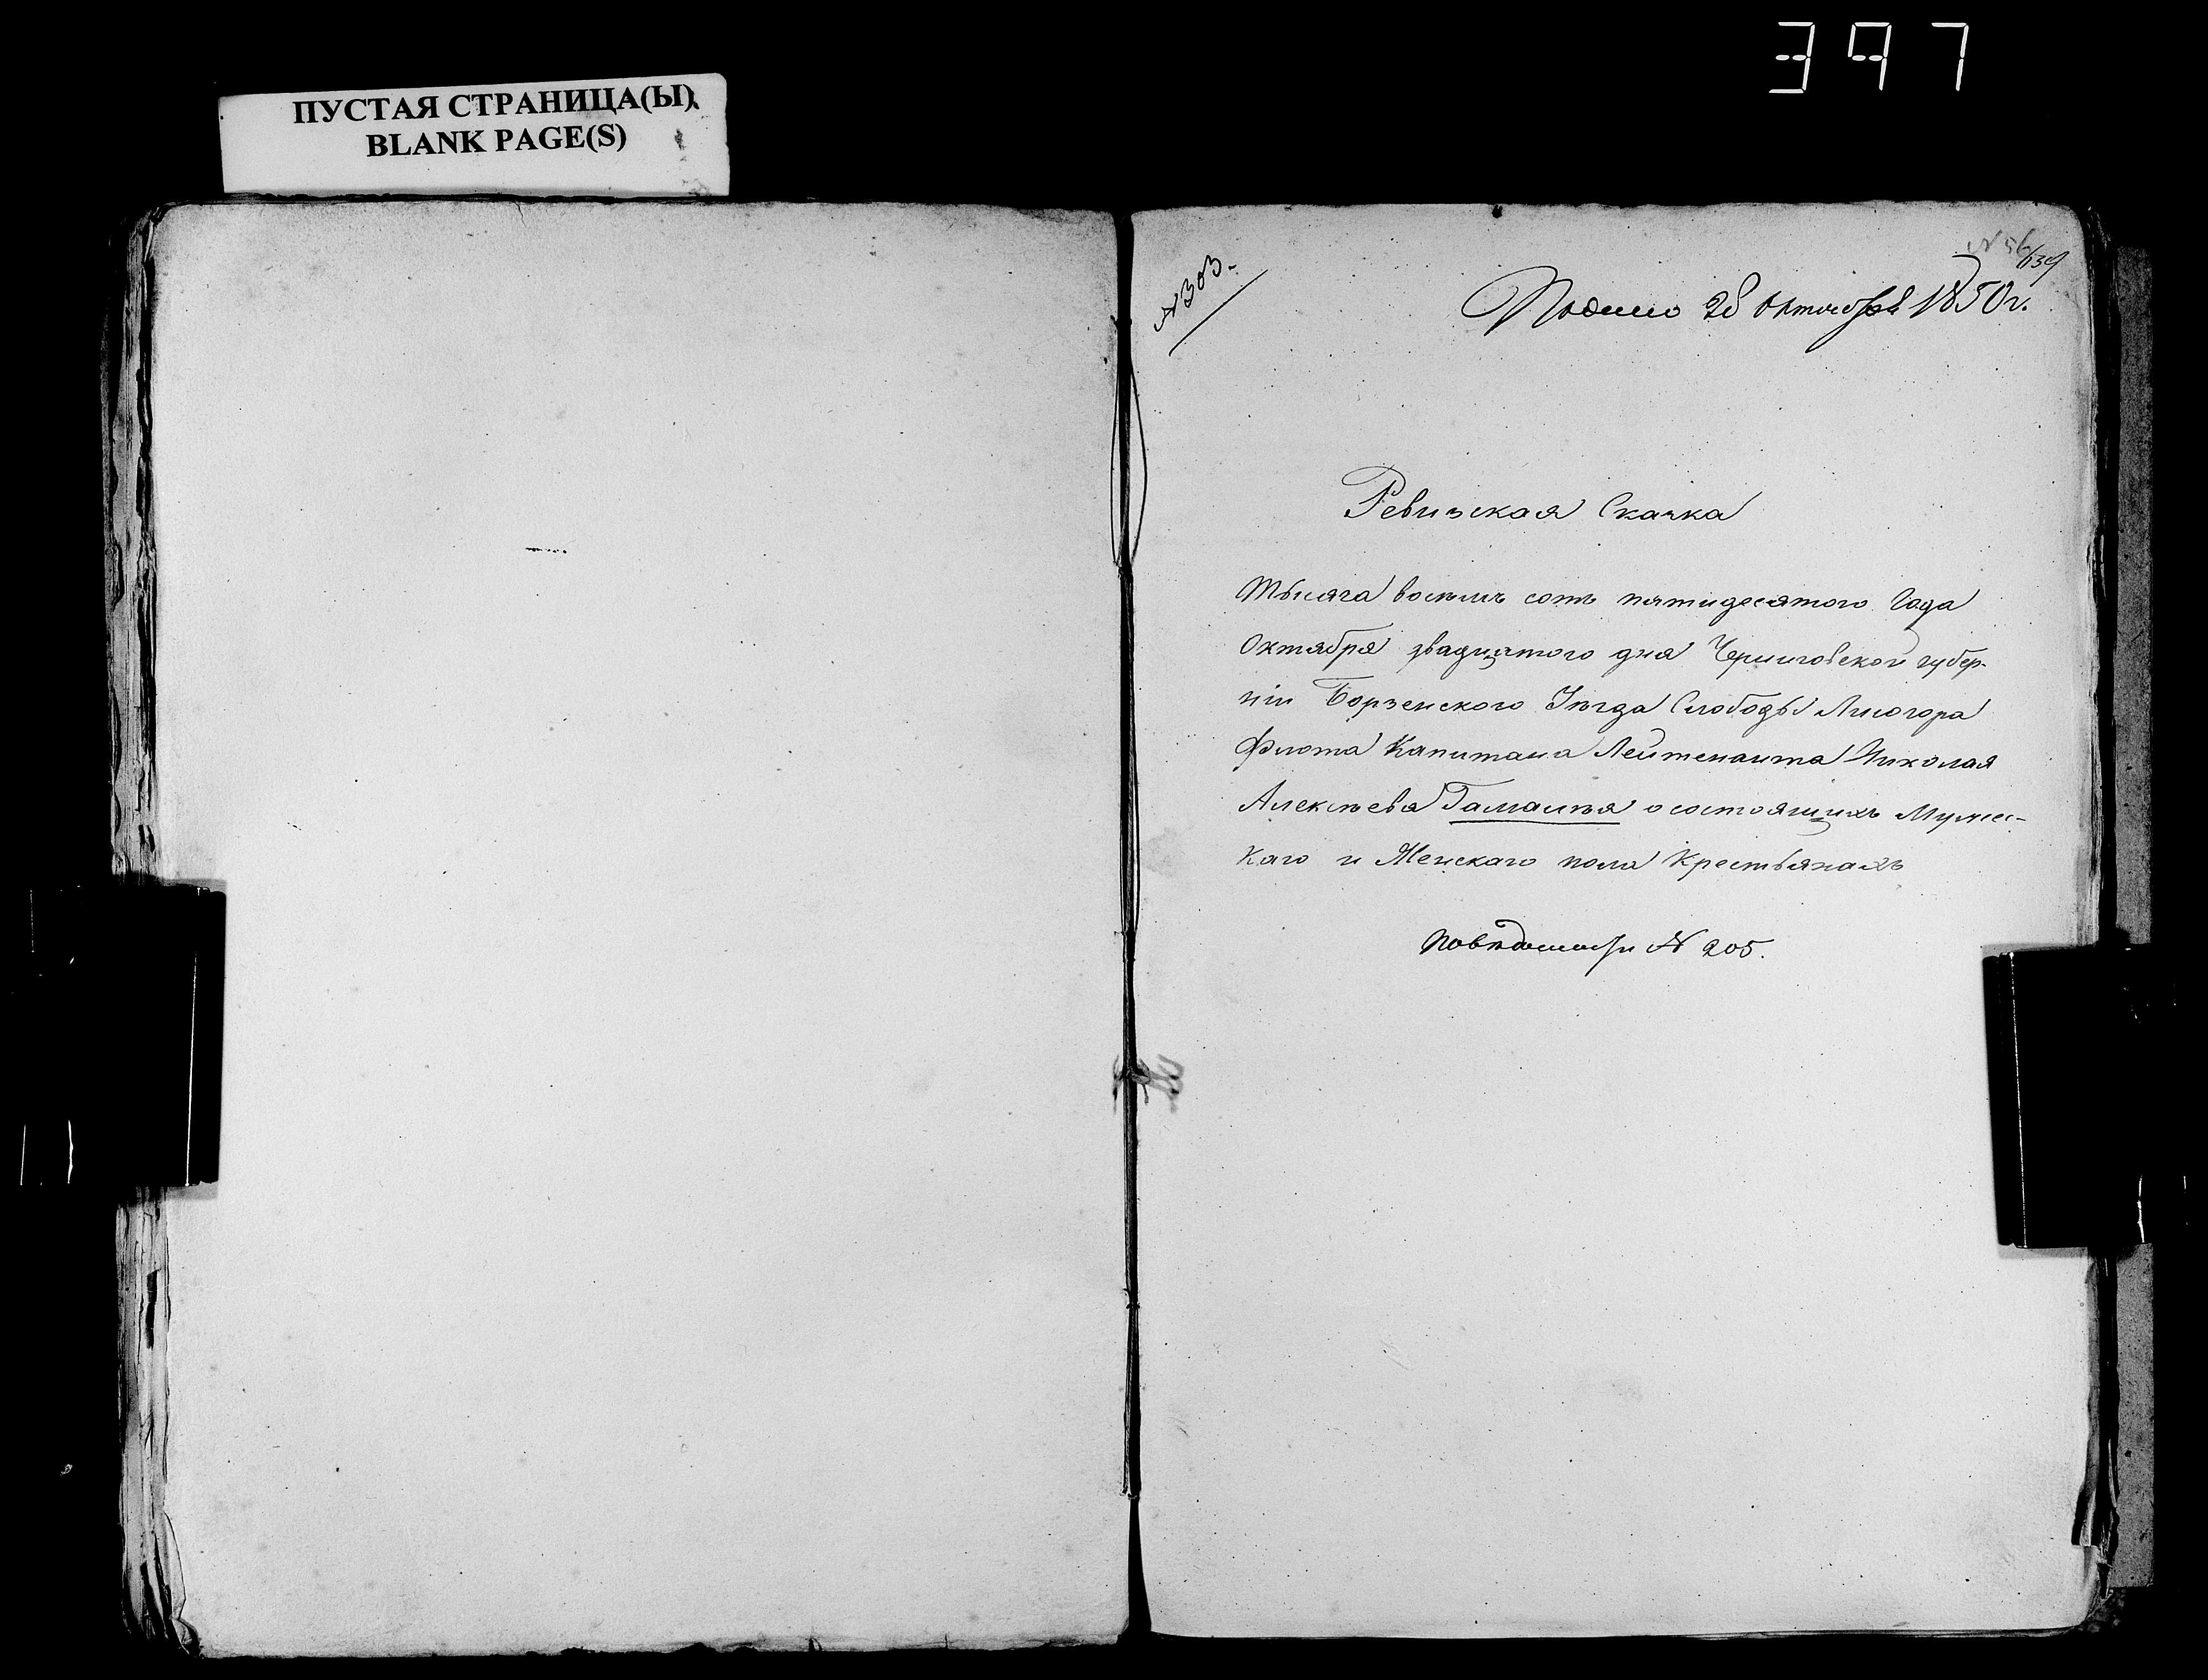 397
ПУСТАЯ СТРАНИЦА(Ы)
BLANK PAGE(S)
№ 303.
Подано 28 Октября 1850 г.
Ревизская Сказка
Тысяча восемь сотъ пятидесятого Года
Октября двадцятого дня Черниговской губер-
ніи Борзенского Уѣзда Слободы Лисогора
Флота Капитана Лейтенанта Николая
Алексѣева Гамалѣя о состоящихъ Мужес-
каго и Женскаго пола Крестьянахъ
По вѣдомости № 205.